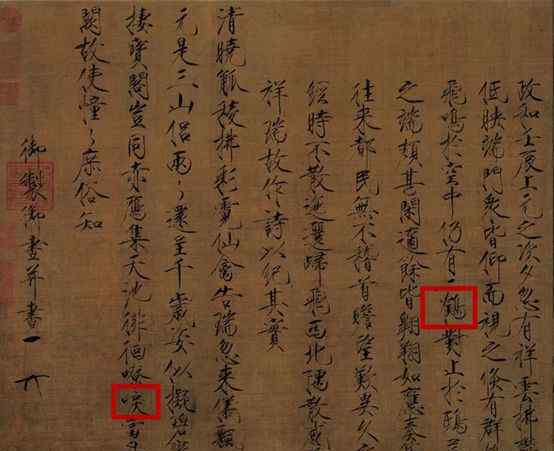 政和壬辰上元之次夕忽有祥雲拂
低映端門眾皆仰而視之倏有群
飛鳴於空中仍有二鶴對止於鴟
之端頗甚閑適餘皆翱翔如應奏
往來都民無不稽首瞻望歎異久
經時不散迤邐歸飛西北隅散感
祥瑞故作詩以紀其實
清曉觚稜拂彩霓仙禽告瑞忽來儀飄
元是三山侶兩〻還呈千歲姿似擬碧
棲寶閣豈同赤鴈集天池徘徊嘹唳當
闕故使憧〻庶俗知
御製御畫并書